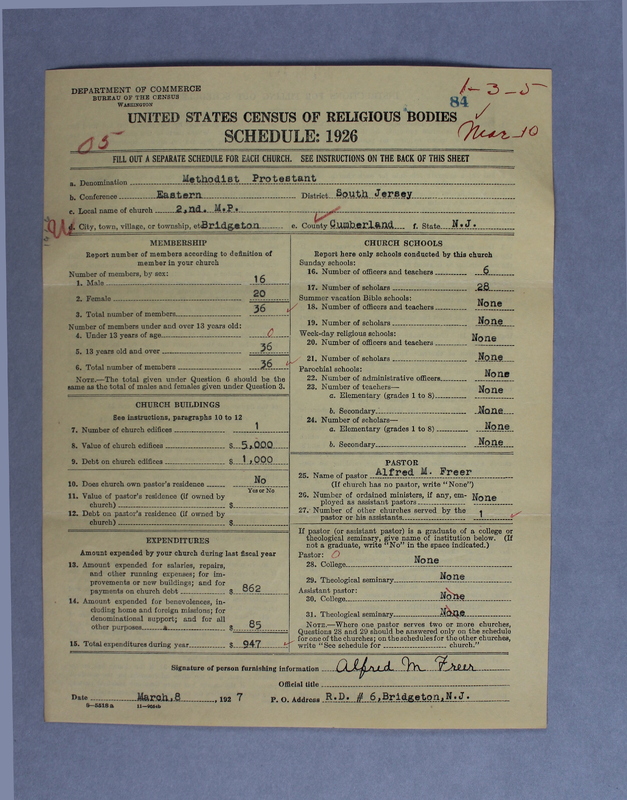 DEPARTMENT OF COMMERCE
BUREAU OF THE CENSUS
WASHINGTON
84
1-3-5
UNITED STATES CENSUS OF RELIGIOUS BODIES
SCHEDULE: 1926
05
Mar 10
FILL OUT A SEPARATE SCHEDULE FOR EACH CHURCH. SEE INSTRUCTIONS ON THE BACK OF THIS SHEET
a. Denomination Methodist Protestant
b. Conference Eastern District South Jersey
c. Local name of church 2,nd. M.P.
d. City, town, village, or township, etc Bridgeton e. County Cumberland f. State N.J.
MEMBERSHIP
Report number of members according to definition of
member in your church
Number of members, by sex:
1. Male 16
2. Female 20
3. Total number of members 36
Number of members under and over 13 years old:
4. Under 13 years of age 0
5. 13 years old and over 36
6. Total number of members 36
NOTE.—The total given under Question 6 should be the
same as the total of males and females given under Question 3.
CHURCH BUILDINGS
See instructions, paragraphs 10 to 12
7. Number of church edifices 1
8. Value of church edifices $ 5,000
9. Debt on church edifices $ 1,000
10. Does church own pastor's residence No
Yes or No
11. Value of pastor's residence (if owned by
church) $
12. Debt on pastor's residence (if owned by
church) $
EXPENDITURES
Amount expended by your church during last fiscal year
13. Amount expended for salaries, repairs,
and other running expenses; for im-
provements or new buildings; and for
payments on church debt $ 862
14. Amount expended for benevolences, in-
cluding home and foreign missions; for
denominational support; and for all
other purposes $ 85
15. Total expenditures during year $ 947
CHURCH SCHOOLS
Report here only schools conducted by this church
Sunday schools:
16. Number of officers and teachers 6
17. Number of scholars 28
Summer vacation Bible schools:
18. Number of officers and teachers None
19. Number of scholars None
Week-day religious schools:
20. Number of officers and teachers None
21. Number of scholars None
Parochial schools:
22. Number of administrative officers None
23. Number of teachers—
a. Elementary (grades 1 to 8) None
b. Secondary None
24. Number of scholars—
a. Elementary (grades 1 to 8) None
b. Secondary None
PASTOR
25. Name of pastor Alfred M. Freer
(If church has no pastor, write "None")
26. Number of ordained ministers, if any, em-
ployed as assistant pastors None
27. Number of other churches served by the
pastor or his assistants 1
If pastor (or assistant pastor) is a graduate of a college or
theological seminary, give name of institution below. (If
not a graduate, write "No" in the space indicated.)
Pastor: 0
28. College None
29. Theological seminary None
Assistant pastor:
30. College None
31. Theological seminary None
NOTE.—Where one pastor serves two or more churches,
Questions 28 and 29 should be answered only on the schedule
for one of the churches; on the schedules for the other churches,
write "See schedule for church."
Signature of person furnishing information Alfred M Freer
Official title
Date March,8, 1927 P. O. Address R.D. # 6,Bridgeton,N.J.
8-5518a 11-9034b